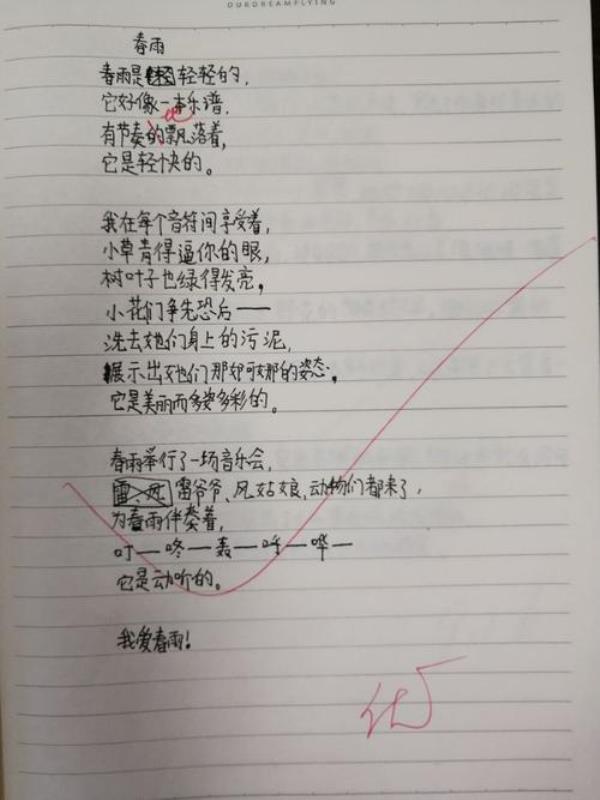 OURDREAMFLYING
春雨
春雨是轻轻的，
它好像一本乐谱，
地
有节奏的飘落着，
它是轻快的。
我在每个音符间享受着，
小草青得逼你的眼，
树叶子也绿得发亮。
小花们争先恐后——
洗去她们身上的污泥，
展示出她们那婀娜的姿态。
它是美丽而多姿多彩的。
春雨举行了一场音乐会，
雷爷爷、风姑娘，动物们都来了，
为春雨伴奏着，
叮—咚—轰—呼—哗—
它是动听的。
我爱春雨！
优